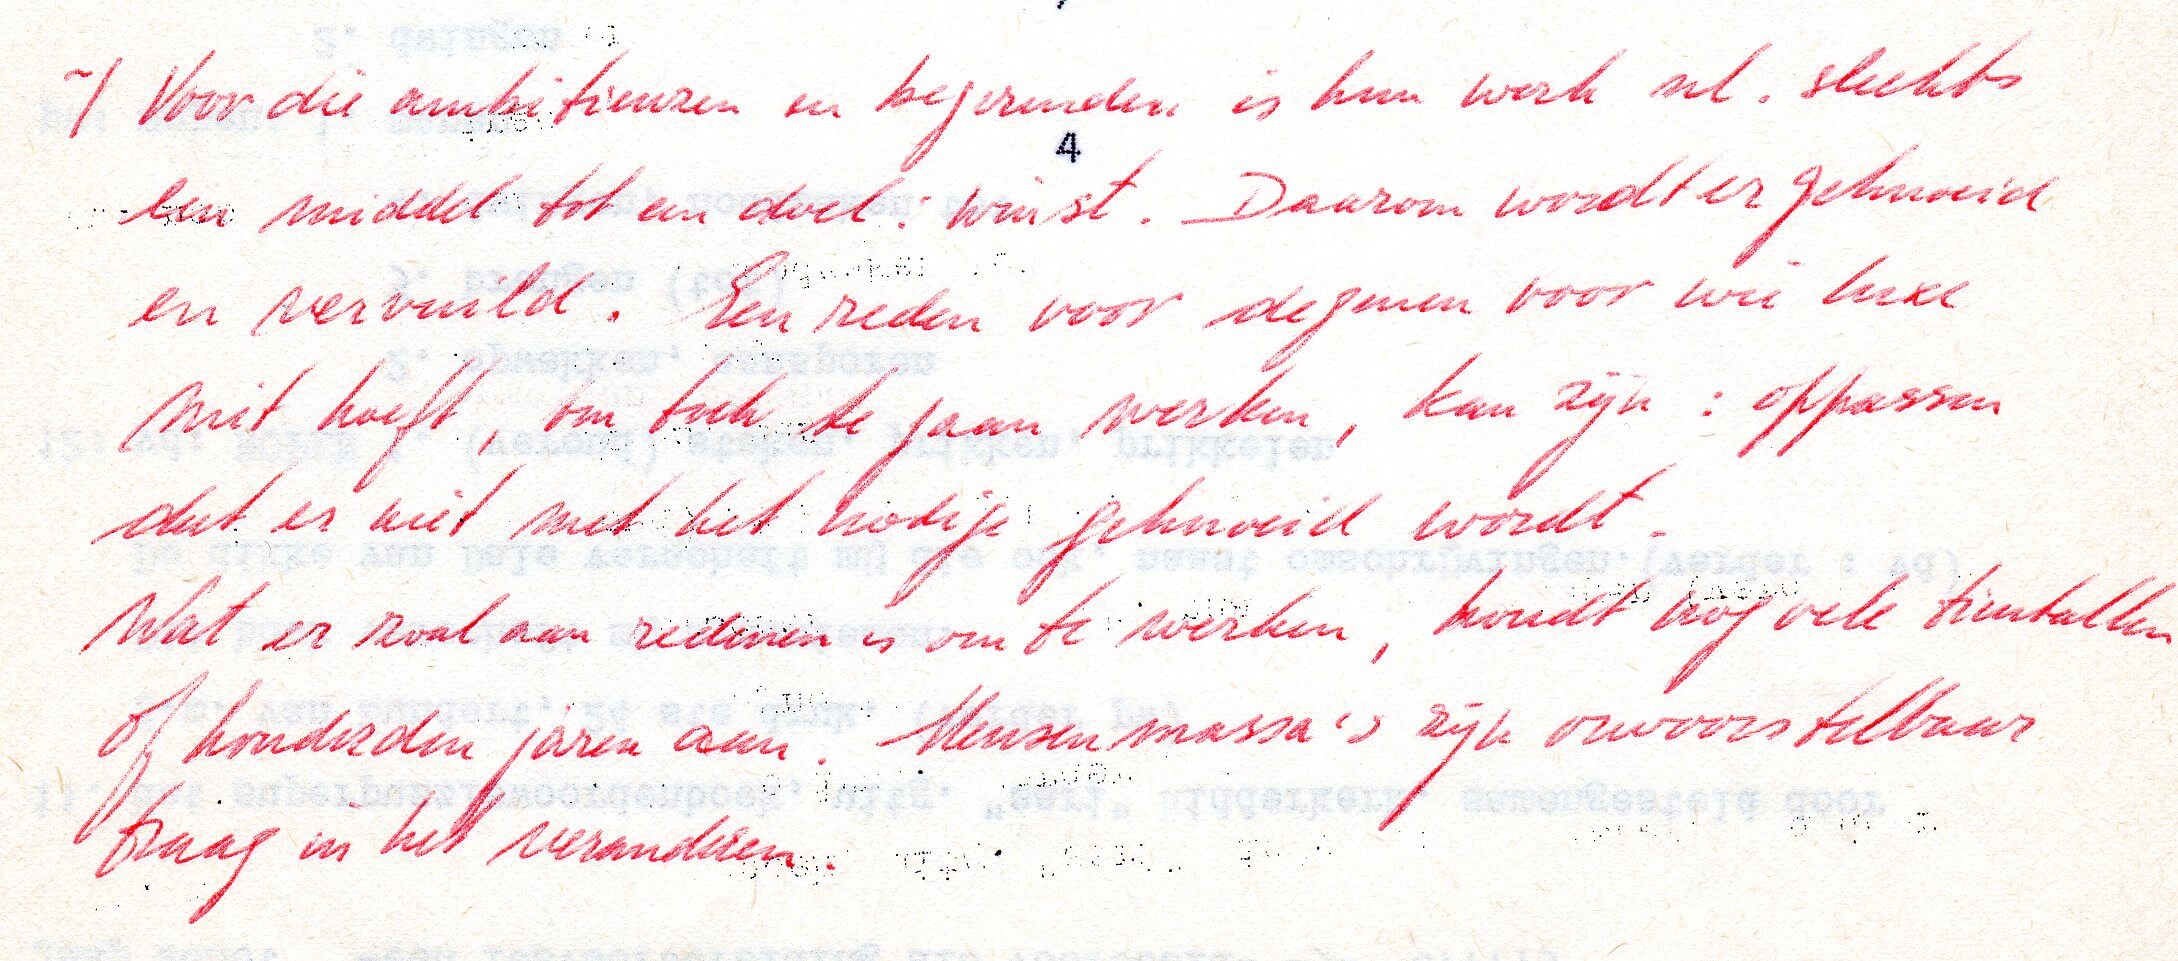 ~/ Voor die ambitieuzen en begeerenden is hun werk nl. slechts
4
een middel tot een doel: winst. Daarom wordt er geknoeid
en vervuild. Een reden voor degenen voor wie luxe
niet hoeft, om toch te gaan werken, kan zijn: oppassen
dat er niet met het nodige geknoeid wordt.
Wat er zoal aan redenen is om te werken, houdt nog vele tientallen
of honderden jaren aan. Mensenmassa's zijn onvoorstelbaar
traag in het veranderen.